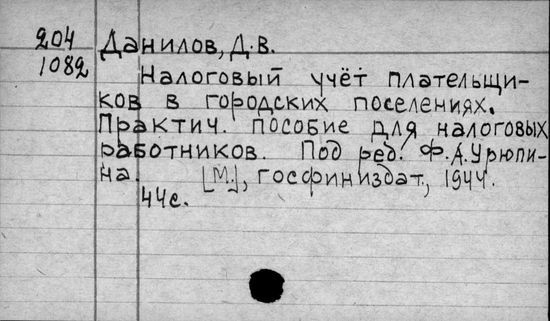 204 Данилов, Д.В.
1082 Налоговый учёт плательщи-
ков в городских поселениях.
Практич. пособие для налоговых
работников. Под ред. Ф.А.Урюпи-
на. [М.], госфиниздат, 1944.
44с.